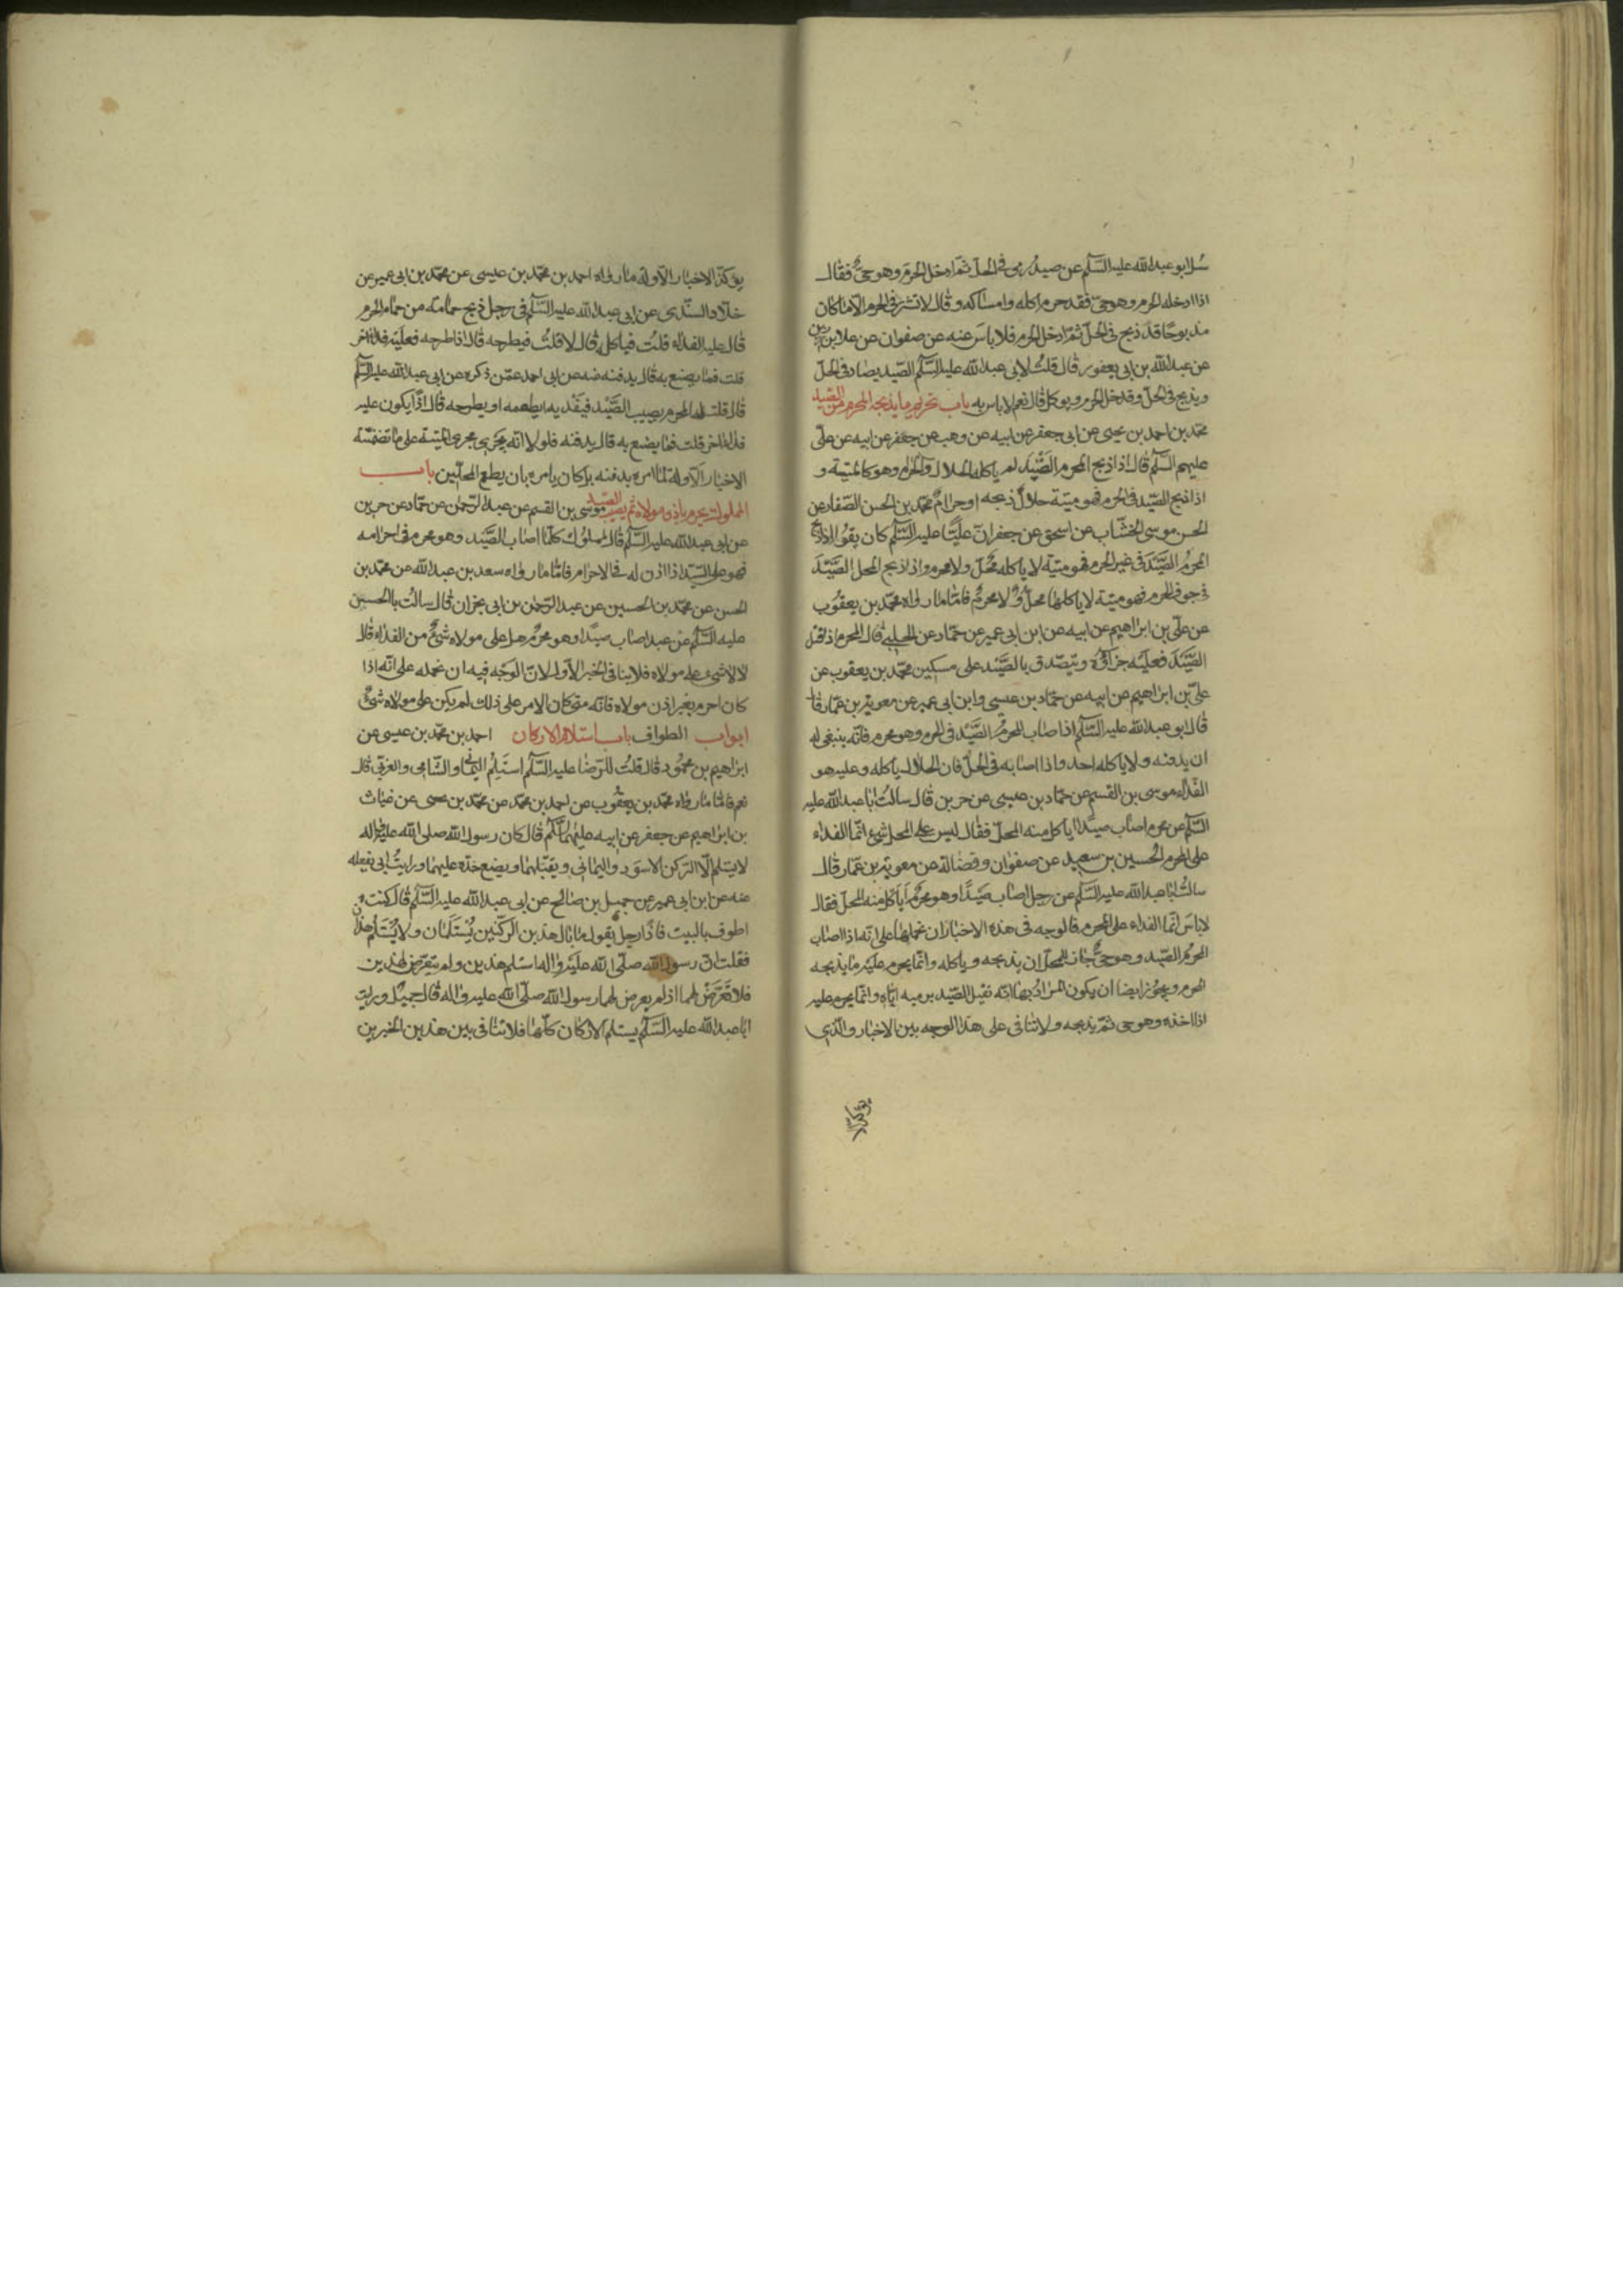 سئل ابو عبدالله عليه السّلم عن صيد رمى فى الحلّ ثمّ ادخل الحرم وهو حىّ فقال
اذا ادخله الحرم وهو حىّ فقد حرم اكله وامساكه وقال لا تشتر فى الحرم الّا ما كان
مذبوحًا قد ذبح فى الحلّ ثمّ ادخل الحرم فلا باس عنه عن صفوان عن علا بن رزين
عن عبدالله بن ابى يعفور قال قلت لابى عبدالله عليه السّلم الصّيد يصاد فى الحلّ
ويذبح فى الحلّ وقد خل الحرم ويوكل قال نعم لا باس به باب تحريم ما يذبحه المحرم من الصّيد
محمّد بن احمد بن يحيى عن ابى جعفر عن ابيه عن وهب عن جعفر عن ابيه عن علىّ
عليهم السّلم قال اذا ذبح المحرم الصّيد لم ياكله الحلال والحرام وهو كالميتة و
اذا ذبح الصّيد فى الحرم فهو ميتة حلال ذبحه او حرام محمّد بن الحسن الصّفار عن
الحسن موسى الخشّاب عن اسحق عن جعفر انّ عليًّا عليه السّلم كان يقول اذا ذبح
المحرم الصّيد فى غير الحرم فهو ميتة لا ياكله محلّ ولا محرم واذا ذبح المحل الصّيد
فى جوف الحرم فهو ميتة لا ياكلها محلّ ولا محرم فامّا ما رواه محمّد بن يعقوب
عن علىّ بن ابراهيم عن ابيه عن ابن ابى عمير عن حمّاد عن الحلبى قال المحرم اذا قتل
الصّيد فعليه جزاؤه ويتصدّق بالصّيد على مسكين محمّد بن يعقوب عن
علىّ بن ابراهيم عن ابيه عن حمّاد بن عيسى وابن ابى عمير عن معوية بن عمّار قال
قال ابو عبدالله عليه السّلم اذا صاب المحرم الصّيد فى الحرم وهو محرم فانّه ينبغى له
ان يدفنه ولا ياكله احد واذا اصابه فى الحلّ فان الحلال ياكله وعليه هو
الفداء موسى بن القسم عن حمّاد بن عيسى عن حريز قال سالت ابا عبدالله عليه
السّلم عن محرم اصاب صيدًا ياكل منه المحلّ فقال ليس على المحل شىء انّما الفداء
على المحرم الحسين بن سعيد عن صفوان وفضالة عن معوية بن عمّار قال
سالت ابا عبدالله عليه السّلم عن رجل اصاب صيدًا وهو محرم اياكل منه المحلّ فقال
لا باس انّما الفداء على المحرم فالوجه فى هذه الاخبار ان نحملها على انّه اذا اصاب
المحرم الصّيد وهو حىّ جاز للمحلّ ان يذبحه وياكله وانّما يحرم عليه ما يذبحه
المحرم ويجوز ايضا ان يكون المراد بها انّه نقيل الصّيد برميه ايّاه وانّما يحرم عليه
اذا اخذه وهو حى ثمّ يذبحه ولا تنافى على هذا الوجه بين الاخبار والّذى
يؤكّد
يؤكّد الاخبار الاوّلة ما رواه احمد بن محمّد بن عيسى عن محمّد بن ابى عمير عن
خلّاد السنّدى عن ابى عبدالله عليه السّلم فى رجل ذبح حمامة من حمام الحرم
قال عليه الفداء قلت فياكله قال لا قلت فيطرحه قال اذا طرحه فعليه فداء اخر
قلت فما يصنع به قال يدفنه عنه عن ابى احمد عمّن ذكره عن ابى عبدالله عليه السّلم
قال قلت له المحرم يصيب الصّيد فيفديه ايطعمه او يطرحه قال اذًا يكون عليه
فداء اخر قلت فما يصنع به قال يدفنه فلولا انّه يجرى مجرى الميتة على ما تضمنته
الاخبار الاوّلة لما امره بدفنه بل كان يامره بان يطعم المحلّين باب
المملوك يحرم باذن مولاه ثم يصيب الصّيد موسى بن القسم عن عبدالرّحمن عن حمّاد عن حريز
عن ابى عبدالله عليه السّلم قال المملوك كلّما اصاب الصّيد وهو محرم فى احرامه
فهو على السّيّد اذا اذن له فى الاحرام فامّا ما رواه سعد بن عبدالله عن محمّد بن
الحسن عن محمّد بن الحسين عن عبدالرّحمن بن ابى نجران قال سالت با الحسين
عليه السّلم عن عبد اصاب صيدًا وهو محرم هل على مولاه شىء من الفداء قال
لا لا شىء على مولاه فلا ينافى الخبر الاول لانّ الوجه فيه ان نحمله على انّه اذا
كان احرم بغير اذن مولاه فانّه متى كان الامر على ذلك لم يكن على مولاه شىء
ابواب الطواف باب استلام الاركان احمد بن محمّد بن عيسى عن
ابراهيم بن محمود قال قلت للرّضا عليه السّلم استلم اليمانى والشّامى والغربى قال
نعم فامّا ما رواه محمّد بن يعقوب عن احمد بن محمّد عن محمّد بن يحيى عن غياث
بن ابراهيم عن جعفر عن ابيه عليهما السّلم قال كان رسول الله صلى الله عليه واله
لا يستلم الّا الرّكن الاسود واليمانى ويقبّلهما ويضع خدّه عليهما ورايت ابى يفعله
عنه عن ابن ابى عمير عن جميل بن صالح عن ابى عبدالله عليه السّلم قال كنت
اطوف بالبيت فاذا رجل يقول ما بال هذين الرّكنين يستلمان ولا يستلم هذان
فقلت انّ رسول الله صلّى الله عليه واله استلم هذين ولم يتعرّض لهذين
فلا تعرّض لهما اذ لم يعرض لهما رسول الله صلّى الله عليه واله قال جميل ورايت
ابا عبدالله عليه السّلم يستلم الاركان كلّها فلا تنافى بين هذين الخبرين